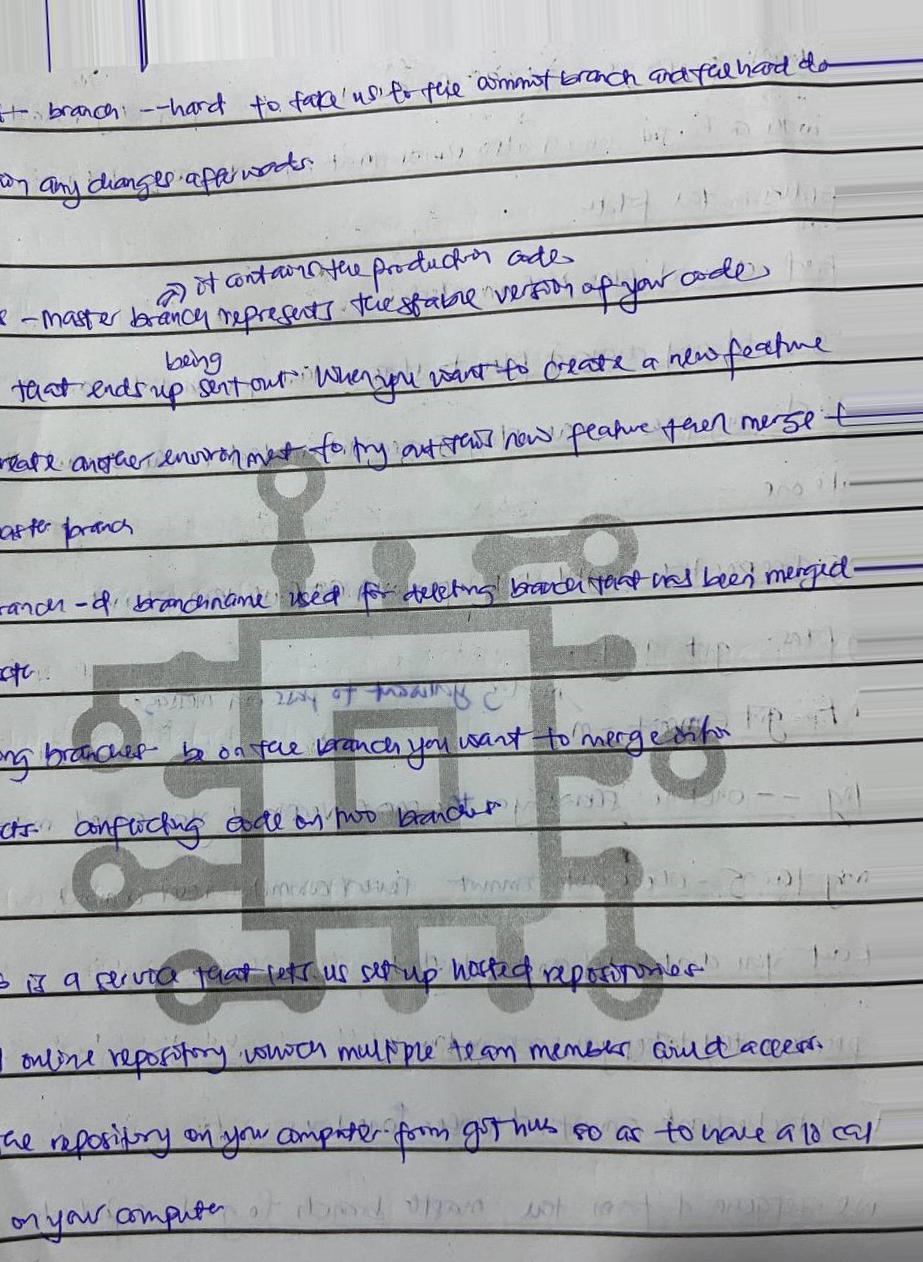 branch: --hard to take us to the commit branch and the hard do
on any changes afterwards.
it contains the production code
- Master branch represents the stable version of your code
being
that ends up sent out. When you want to create a new feature
another environment to try out this new feature then merge t
aster branch
ranch -d branchname used for deleting branch that has been merged
etc
ng branches be on the branch you want to merge onto
cts conflicting code on two branches
b is a service that lets us set up hosted repositories
online repository which multiple team members could access.
he repository on your computer from github so as to have a local
on your computer